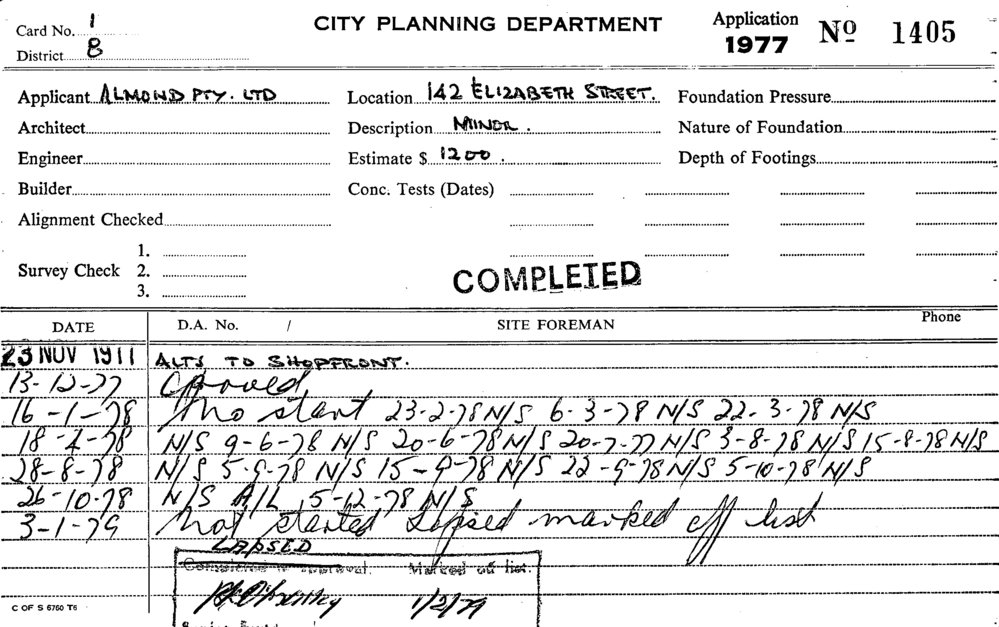 Card No. 1
District B
CITY PLANNING DEPARTMENT
Application 1977 No 1405
Applicant ALMOND PTY. LTD
Location 142 ELIZABETH STREET.
Foundation Pressure
Architect
Description MINOR.
Nature of Foundation
Engineer
Estimate $ 1200.
Depth of Footings
Builder
Conc. Tests (Dates)
Alignment Checked
Survey Check 1. 2. 3.
COMPLETED
DATE D.A. No. / SITE FOREMAN Phone
23 NOV 1911 ALTS TO SHOPFRONT.
13-12-77
16-1-78 No start 23-2-78 N/S 6-3-78 N/S 22-3-78 N/S
18-4-78 N/S 9-6-78 N/S 20-6-78 N/S 20-7-77 N/S 3-8-78 N/S 15-8-78 N/S
28-8-78 N/S 5-9-78 N/S 15-9-78 N/S 22-9-78 N/S 5-10-78 N/S
26-10-78 N/S A/L 5-12-78 N/S
3-1-79 Not started Lapsed marked off list
LAPSED
Marked off list.
1/2/79
C OF S 6760 T6